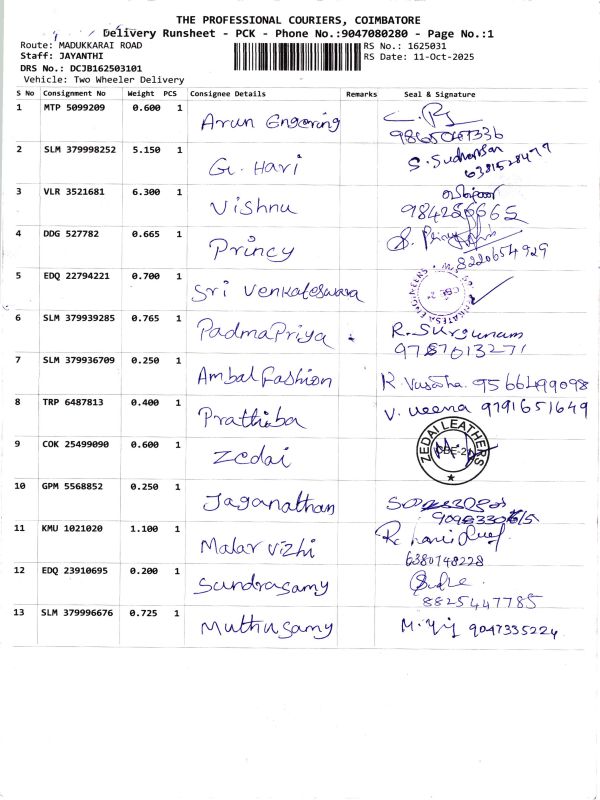 THE PROFESSIONAL COURIERS, COIMBATORE
Delivery Runsheet - PCK - Phone No.:9047080280 - Page No.:1
Route: MADUKKARAI ROAD
Staff: JAYANTHI
DRS No.: DCJB162503101
Vehicle: Two Wheeler Delivery
RS No.: 1625031
RS Date: 11-Oct-2025
S No Consignment No Weight PCS Consignee Details Remarks Seal & Signature
1 MTP 5099209 0.600 1 Arun Engering
2 SLM 379998252 5.150 1 G. Hari S. Sudharsan
6381528479
3 VLR 3521681 6.300 1 Vishnu
4 DDG 527782 0.665 1 Princy
8220654929
5 EDQ 22794221 0.700 1 Sri Venkateswara
6 SLM 379939285 0.765 1 PadmaPriya R. Surgunam
9787013271
7 SLM 379936709 0.250 1 Ambal Fashion R. Vasatha. 9566499098
8 TRP 6487813 0.400 1 Prathiba V. veena 9791651649
9 COK 25499090 0.600 1 Zedai ZEDAI LEATHERS
10 GPM 5568852 0.250 1 Jaganathan
11 KMU 1021020 1.100 1 Malar Vizhi
6380748228
12 EDQ 23910695 0.200 1 Sundrasamy
8825447785
13 SLM 379996676 0.725 1 Muthusamy 9047335224